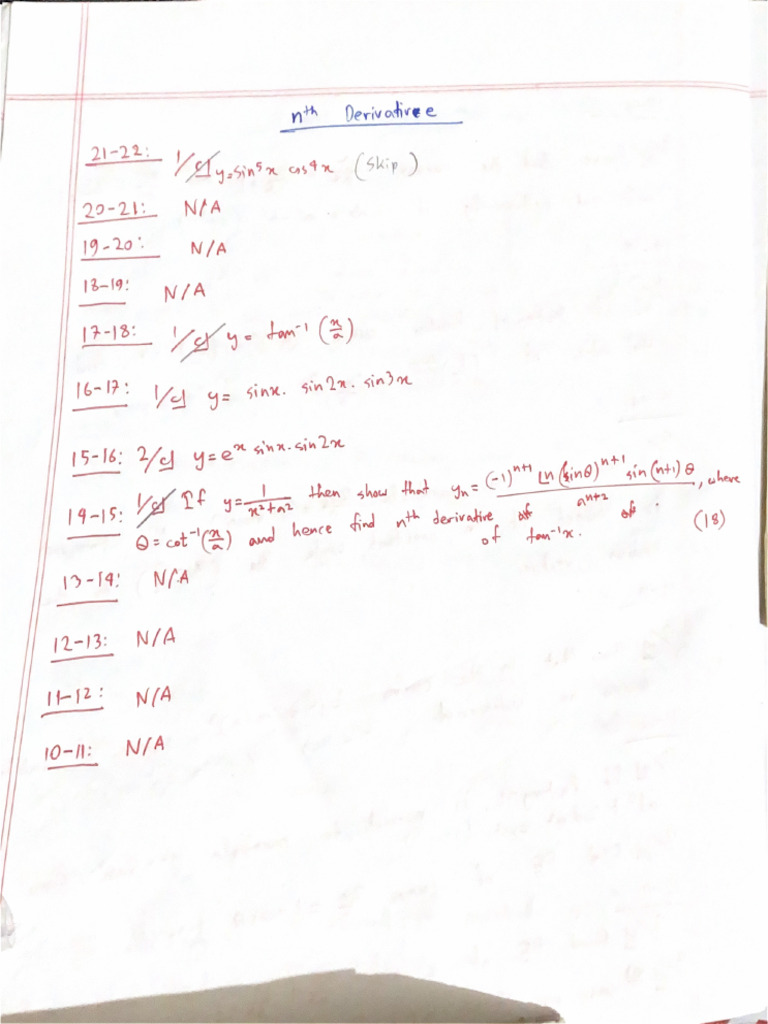 nth Derivative
21-22: 1/c) y=sin⁵x cos⁴x (Skip)
20-21: N/A
19-20: N/A
18-19: N/A
17-18: 1/c) y = tan⁻¹(x/a)
16-17: 1/c) y = sinx. sin2x. sin3x
15-16: 2/c) y=eˣ sinx.sin2x
14-15: 1/c) If y = 1/(x²+a²) then show that yₙ = (-1)ⁿ⁺¹ Ln (sinθ)ⁿ⁺¹ sin(n+1)θ / aⁿ⁺², where
θ=cot⁻¹(x/a) and hence find nth derivative of tan⁻¹x. (18)
13-14: N/A
12-13: N/A
11-12: N/A
10-11: N/A